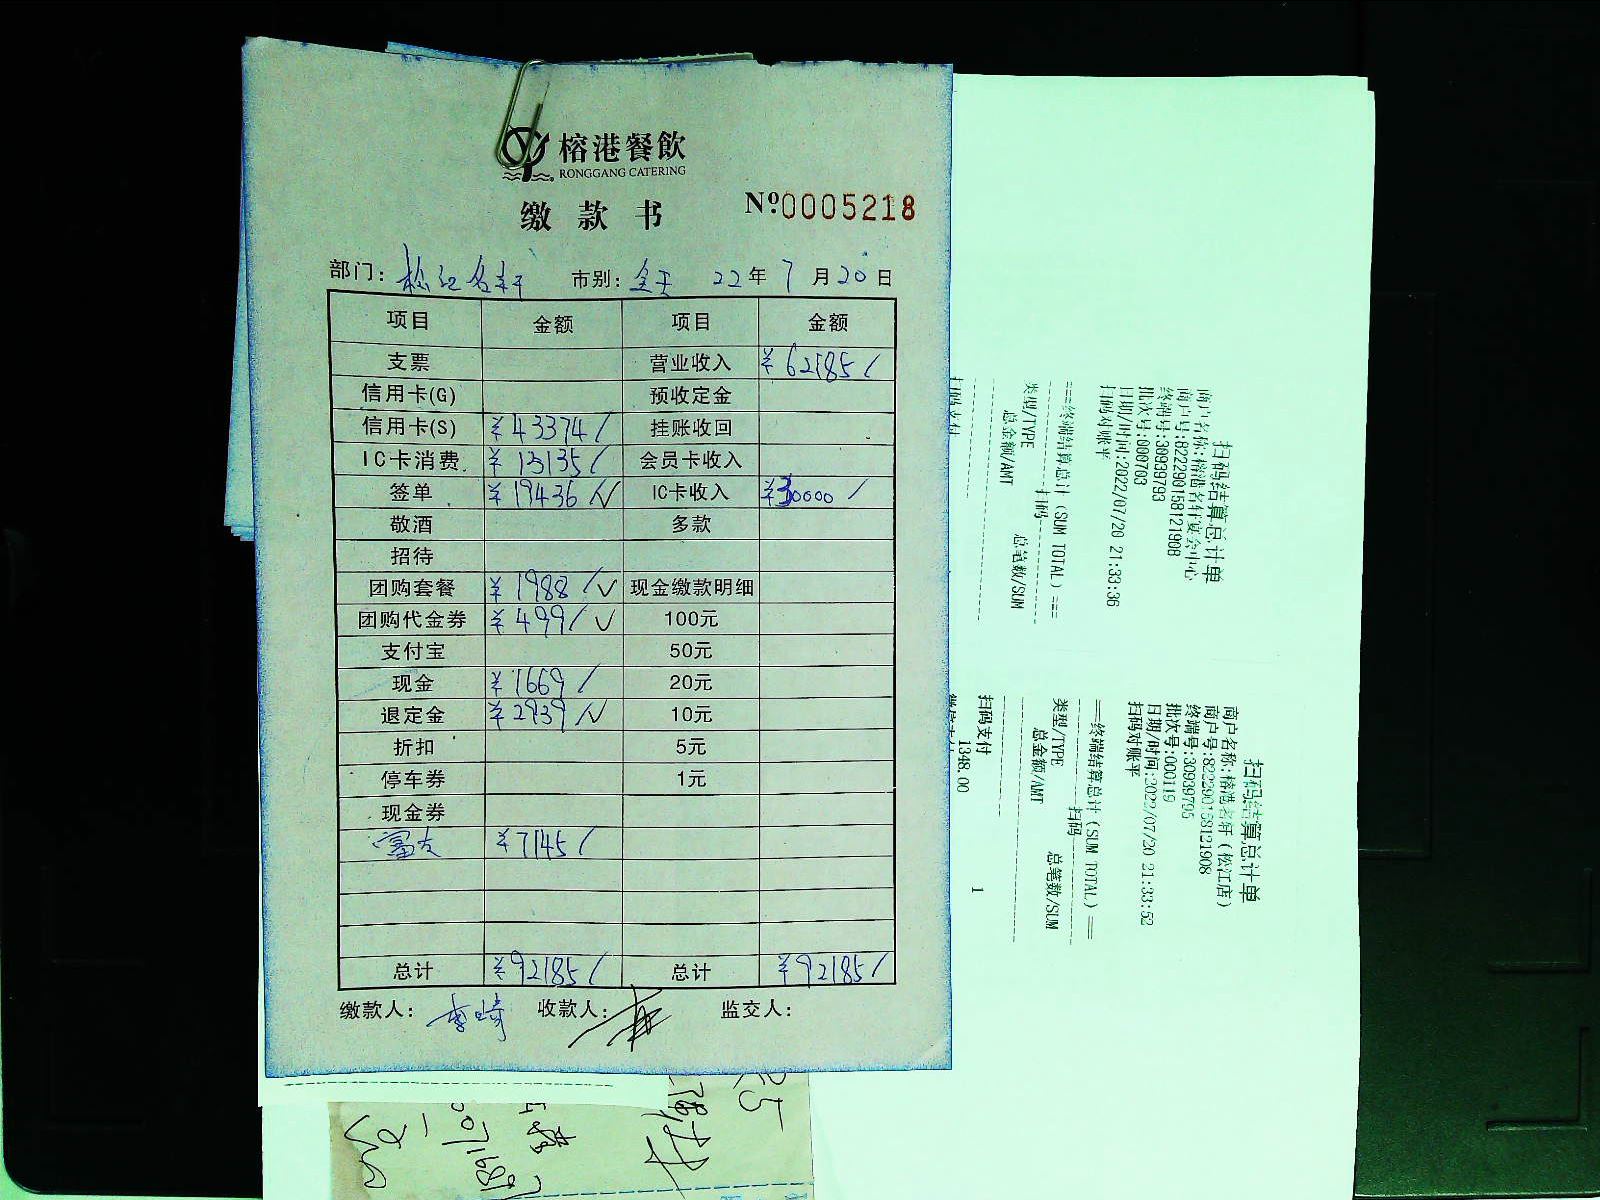 榕港餐飲
RONGGANG CATERING
缴款书
Nº0005218
部门: 松江名轩 市别: 全天 22年7月20日
项目 金额 项目 金额
支票 营业收入 ¥62185/
信用卡(G) 预收定金
信用卡(S) ¥43374/ 挂账收回
IC卡消费 ¥15135/ 会员卡收入
签单 ¥19436/√ IC卡收入 ¥30000/
敬酒 多款
招待
团购套餐 ¥1988/√ 现金缴款明细
团购代金券 ¥499/√ 100元
支付宝 50元
现金 ¥1669/ 20元
退定金 ¥2939/√ 10元
折扣 5元
停车券 1元
现金券
富友 ¥7145/
总计 ¥92185/ 总计 ¥92185/
缴款人: 李琦 收款人: 监交人:
扫码结算总计单
商户名称:榕港名轩宴会中心
商户号:822290158121908
终端号:30939793
批次号:000703
日期/时间:2022/07/20 21:33:36
扫码对账平
===终端结算总计(SUM TOTAL)===
扫码
类型/TYPE 总笔数/SUM
总金额/AMT
扫码支付
扫码结算总计单
商户名称:榕港名轩(松江店)
商户号:822290158121908
终端号:30939795
批次号:000119
日期/时间:2022/07/20 21:33:52
扫码对账平
===终端结算总计(SUM TOTAL)===
扫码
类型/TYPE 总笔数/SUM
总金额/AMT
扫码支付 1
1348.00